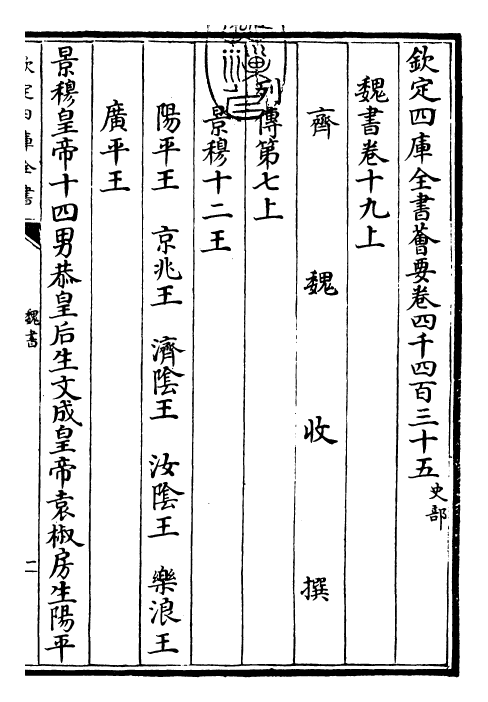 欽定四庫全書薈要卷四千四百三十五史部
魏書卷十九上
齊 魏 收 撰
列傳第七上
景穆十二王
陽平王 京兆王 濟陰王 汝陰王 樂浪王
廣平王
景穆皇帝十四男恭皇后生文成皇帝袁椒房生陽平
欽定四庫全書
魏書